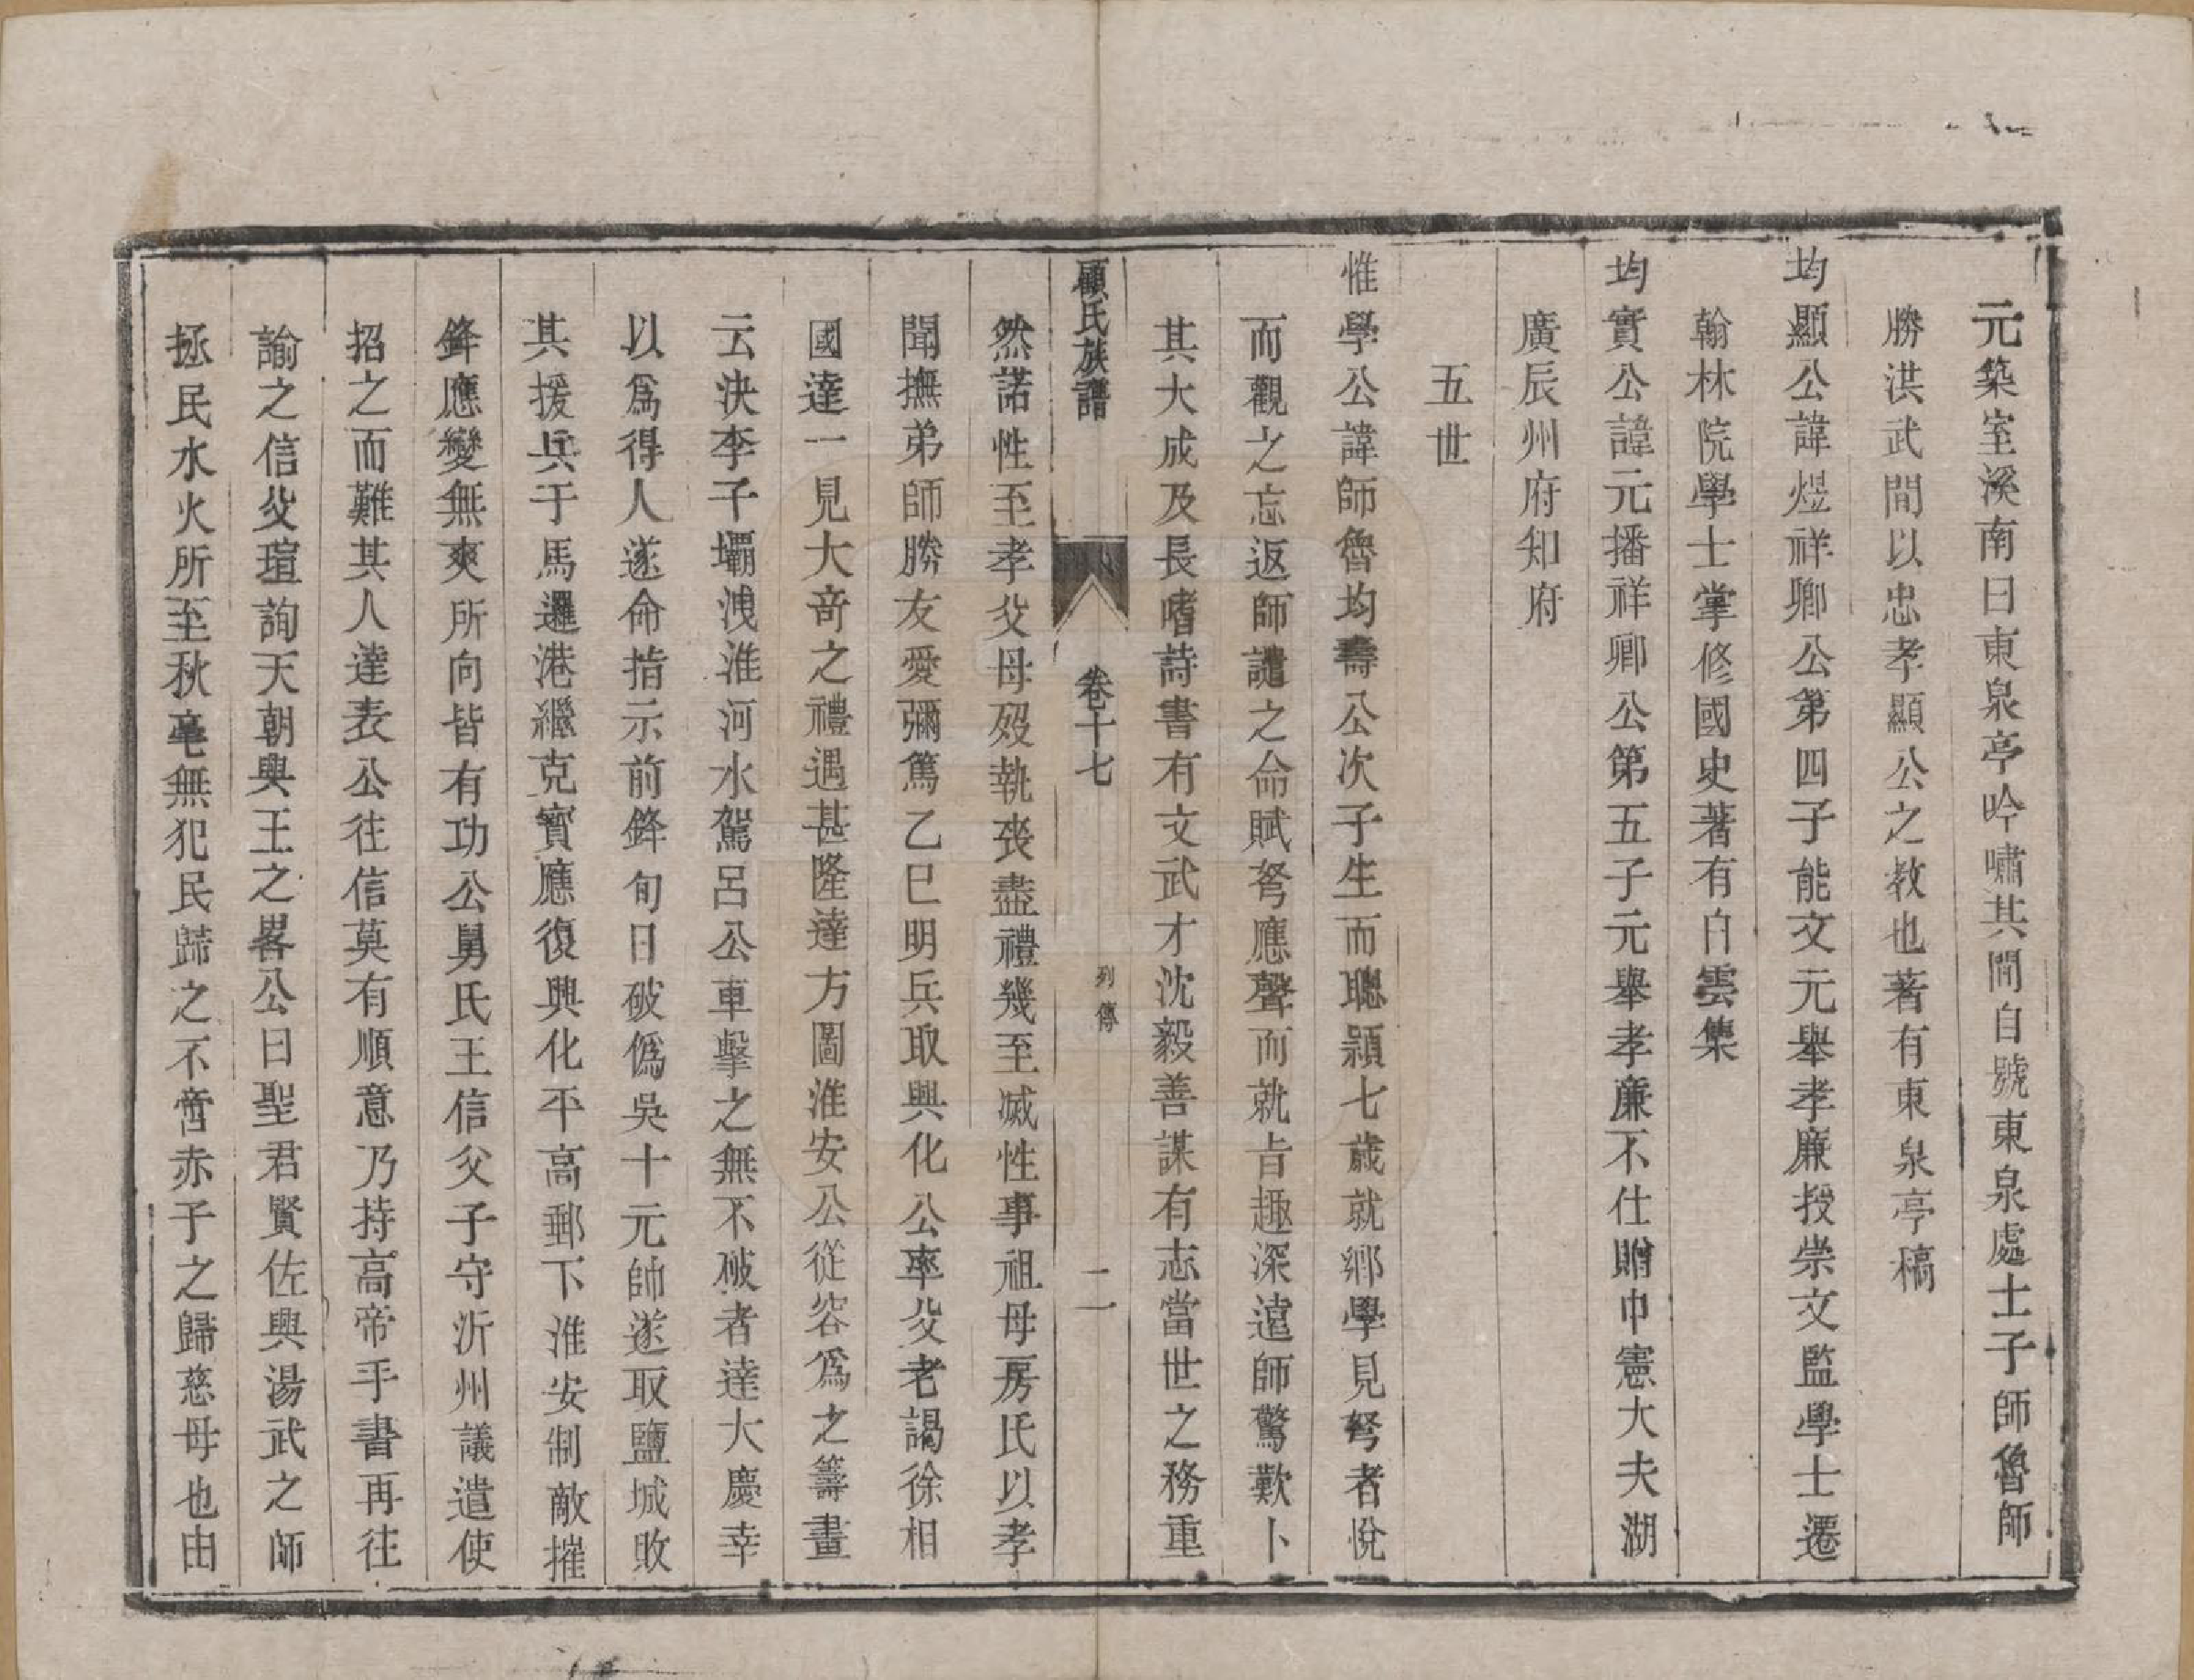 元築室溪南曰東泉亭吟嘯其間自號東泉處士子師魯師
勝洪武間以忠孝顯公之教也著有東泉亭稿
均顯公諱煜祥卿公第四子能文元舉孝廉授崇文監學士遷
翰林院學士掌修國史著有白雲集
均實公諱元播祥卿公第五子元舉孝廉不仕贈中憲大夫湖
廣辰州府知府
五世
惟學公諱師魯均壽公次子生而聰頴七歲就鄉學見弩者悅
而觀之忘返師譴之命賦弩應聲而就㫖趣深遠師驚歎卜
其大成及長嗜詩書有文武才沈毅善謀有志當世之務重
顧氏族譜 卷十七 列傳 二
然諾性至孝父母殁執喪盡禮幾至滅性事祖母房氏以孝
聞撫弟師勝友愛彌篤乙巳明兵取興化公率父老謁徐相
國達一見大竒之禮遇甚隆達方圖淮安公從容爲之籌畫
云決李子壩洩淮河水駕呂公車擊之無不破者達大慶幸
以爲得人遂命指示前鋒旬日破僞吳十元帥遂取鹽城敗
其援兵于馬邏港繼克寶應復興化平高郵下淮安制敵摧
鋒應變無爽所向皆有功公舅氏王信父子守沂州議遣使
招之而難其人達表公往信莫有順意乃持高帝手書再往
諭之信父瑄詢天朝興王之畧公曰聖君賢佐興湯武之師
拯民水火所至秋毫無犯民歸之不啻赤子之歸慈母也由